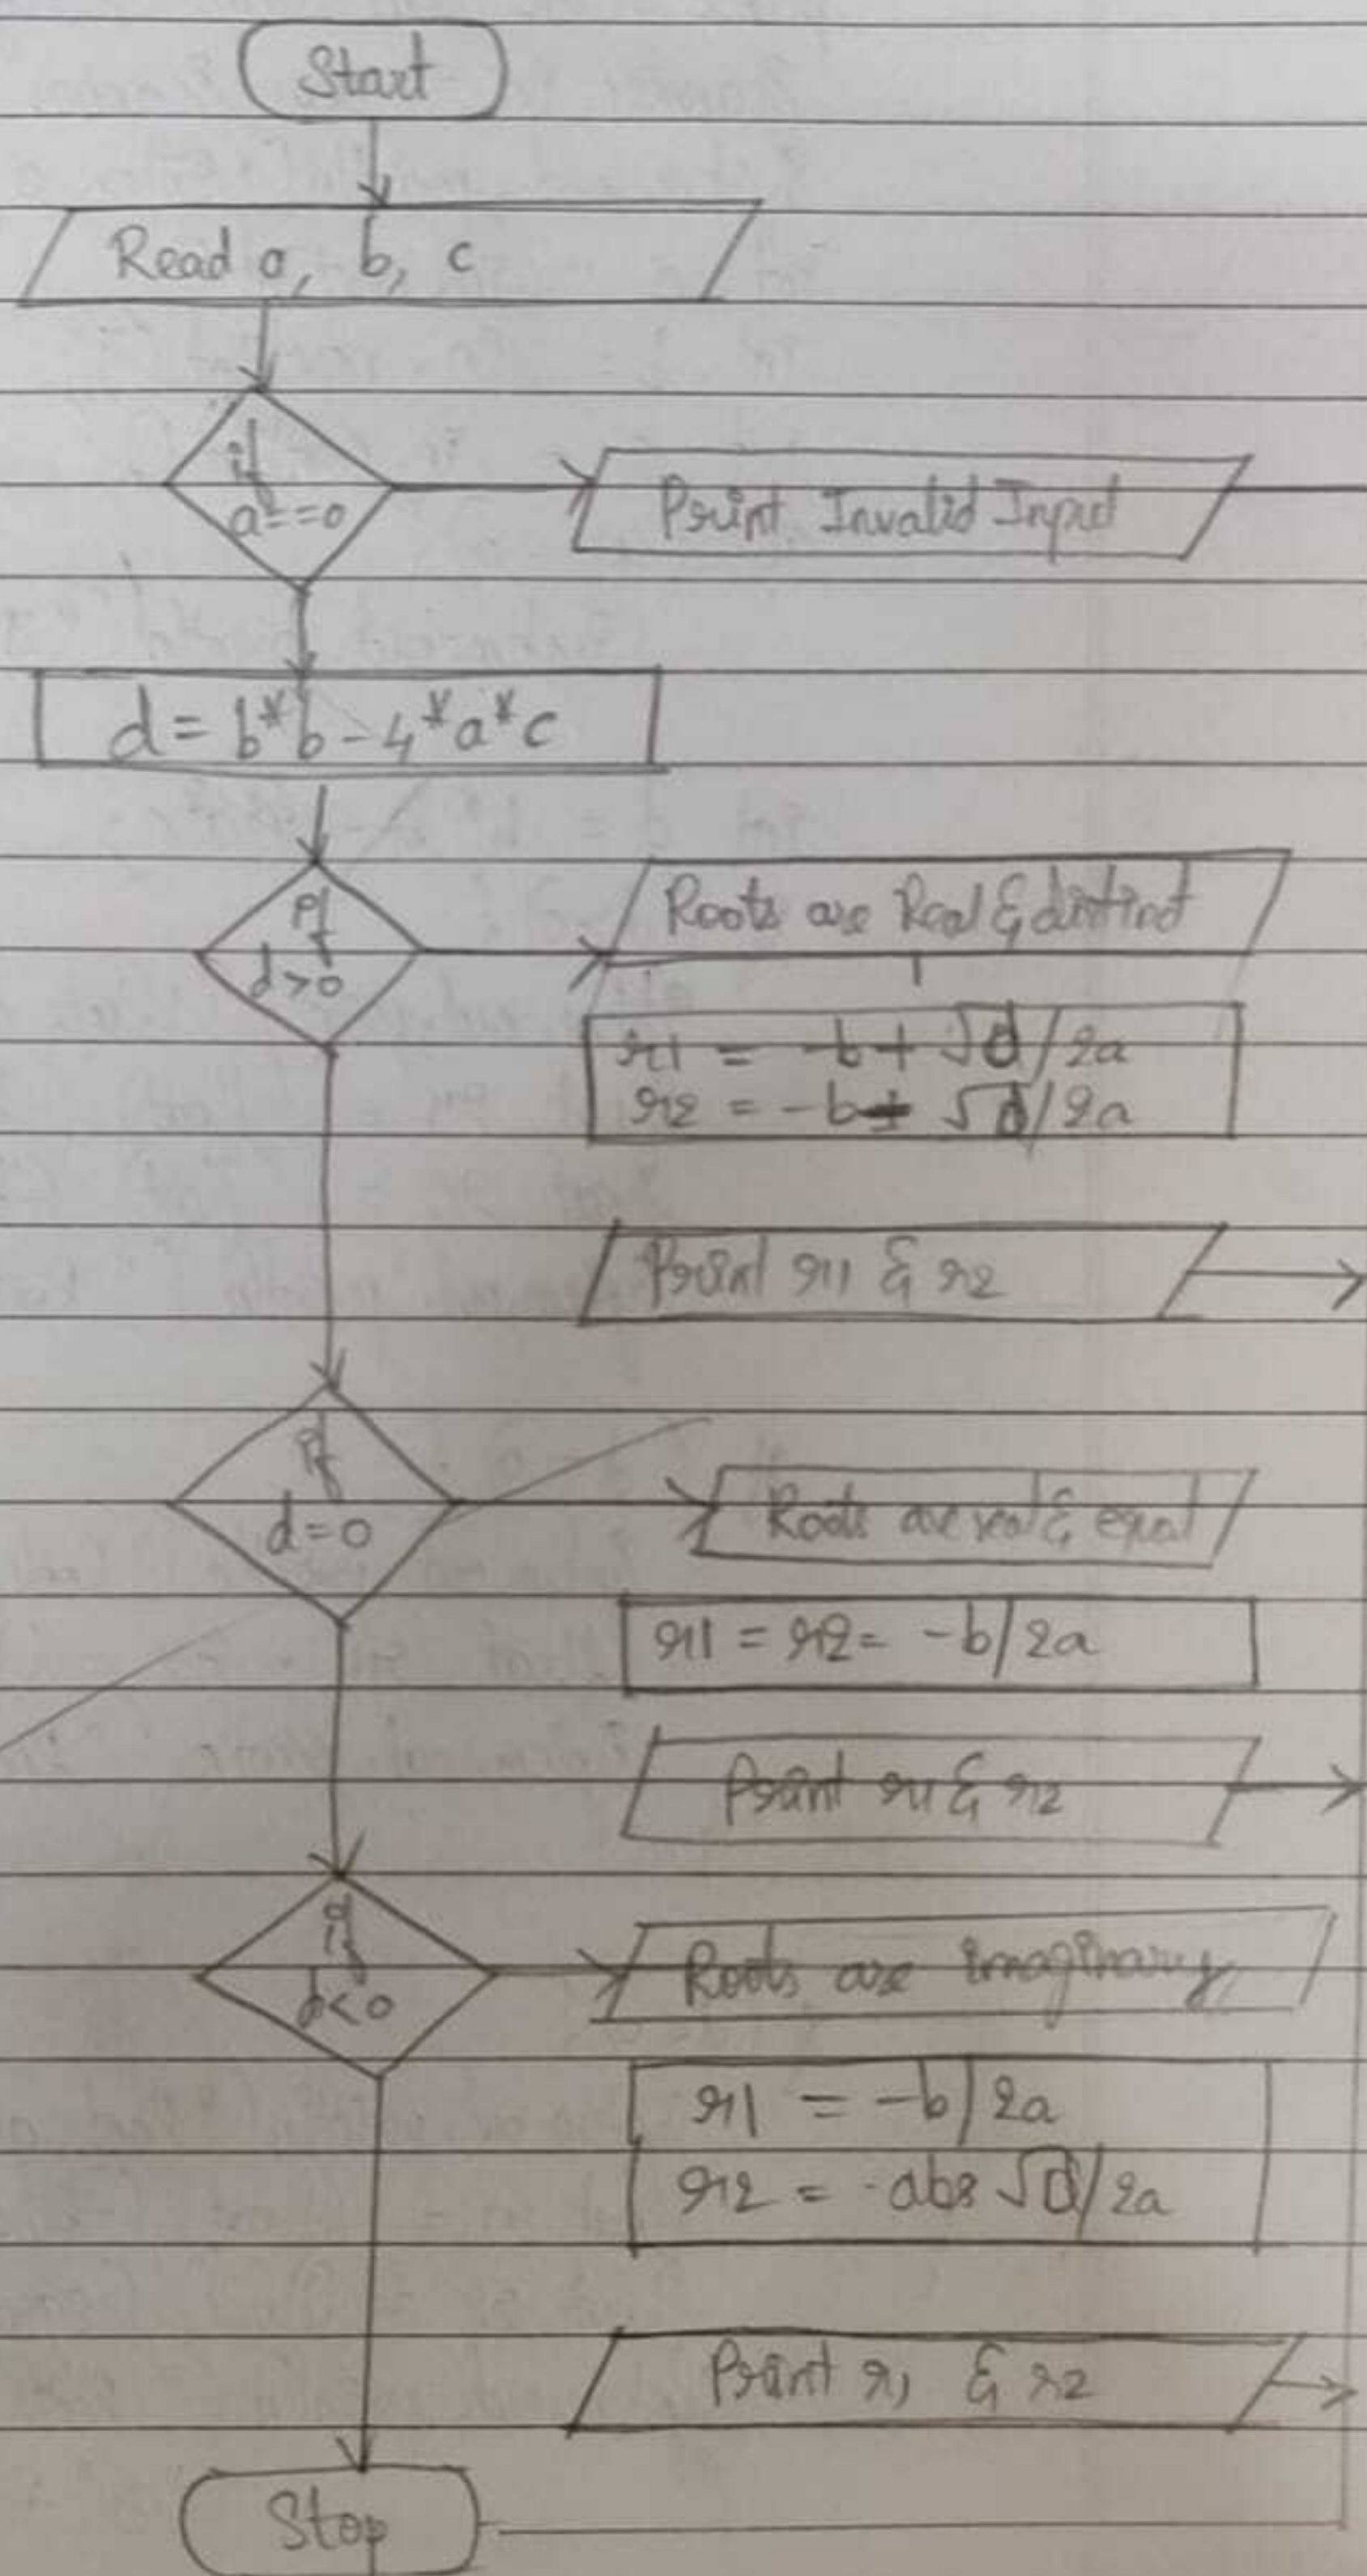 Start
Read a, b, c
if
a==0
Print Invalid Input
d = b*b - 4*a*c
if
d>0
Roots are Real & distinct
r1 = -b + √d/2a
r2 = -b ± √d/2a
Print r1 & r2
if
d=0
Roots are real & equal
r1 = r2 = -b/2a
Print r1 & r2
if
d<0
Roots are imaginary
r1 = -b/2a
r2 = -abs √d/2a
Print r1 & r2
Stop